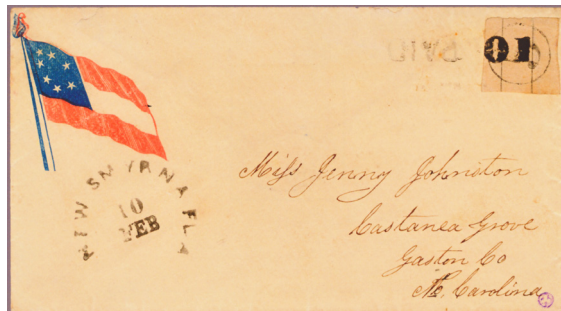 PAID
10
NEW SMYRNA FLA
10
FEB
Miss Jenny Johnston
Castanea Grove
Gaston Co
N. Carolina